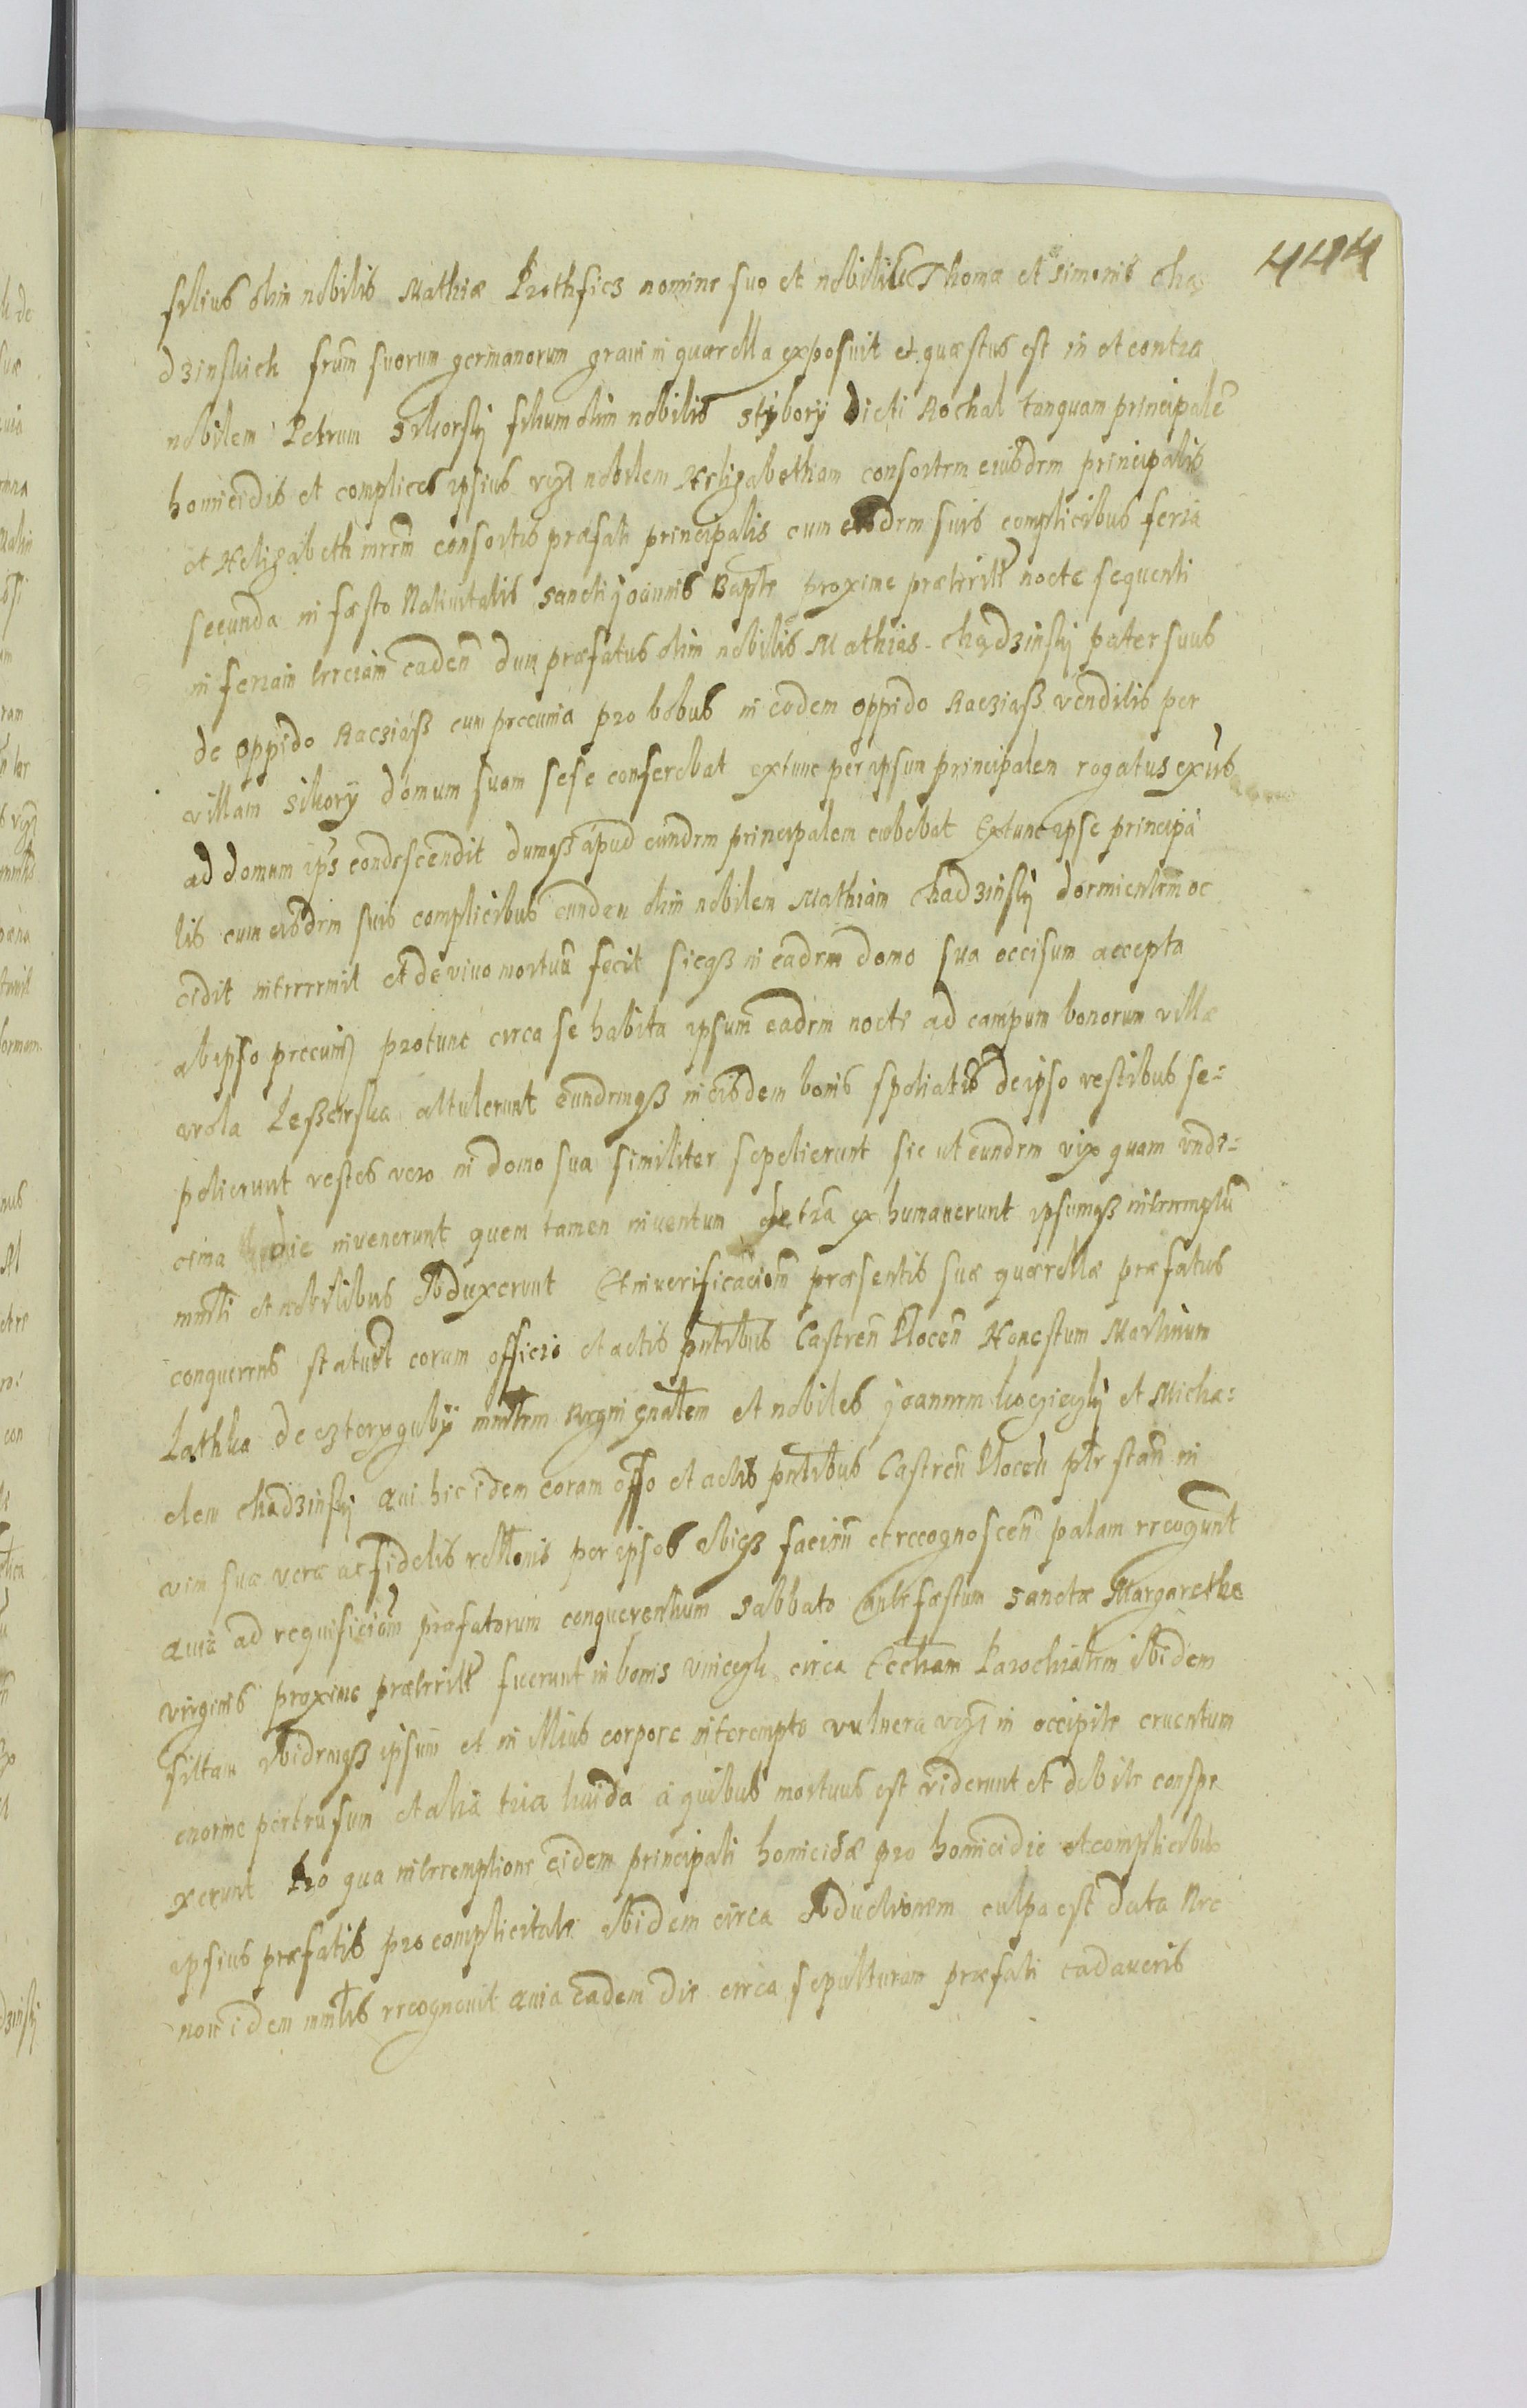 444
filius olim nobilis Mathiæ Prothficz nomine suo et nobiliu Thomæ et Simonis Cha
dzinskich frum suorum germanorum gravi in quærella exposuit et quæstus est in et contra
nobilem Petrum Sikorsky filium olim nobilis Stybory dicti Rochal tanquam principale
homicidis et complices ipsius vcz nobilem Helizabetham consortem eiusdem principalis
et Helizabeth mrem consortis præfati principalis cum eisdem suis complicibus feria
secunda in fæsto Nativitatis Sancti Joannis Bapte proxime præterit nocte sequenti
in feriam terciam caden dum præfatus olim nobilis Mathias Chądzinsky pater suus
de oppido Racziąß cum pecunia pro bobus in eodem oppido Racziąß venditis per
villam Sikory domum suam sese conferebat extunc per ipsum principalem rogatus exiis
ad domum ips condescendit dumqz apud eundem principalem cubebat Extunc ipse principa
lis cum eisdem suis complicibus eundem olim nobilem Mathiam Chadzinsky dormientem oc
cidit interemit et de vivo mortuu fecit sicqz in eadem domo sua occisum accepta
ab ipso pecunia protunc circa se habita ipsum eadem nocte ad campum bonorum villæ
Wola attulerunt eundemqz in eisdem bonis spoliatis de ipso vestibus se-
pelierunt vestes vero in domo sua similiter sepelierunt sic ut eundem vix quam unde-
cima die invenerunt quem tamen inventum de tra exhumaverunt ipsumqz interemptu
mnlti et nobilibus obduxerunt Et in verificaciom præsentis suæ quærellæ præfatus
conquerens statuit coram officio et actis pntibus Castren Plocen Honestum Martinum
Lathka de mnlrem Regni gnalem et nobiles Joannem et Micha-
elem Chadzinsky Qui hic idem coram offo et actis pntibus Castren Plocen plr stan in
vim suæ veræ ac fidelis rellonis per ipsos ibiqz facien et recognoscen palam recogunt
Quia ad requisiciom præfatorum conquerentium Sabbato ante fæstum Sanctæ Margarethæ
virginis proxime præterit fuerunt in bonis circa Eccliam Parochialem ibidem
sitam ibidemqz ipsum et in illius corpore interempto vulnera vcz in occipite cruentum
enorme pertrusum et alia tria livida a quibus mortuus est viderunt et debite conspe
xerunt Pro qua interemptione eidem principali homicidæ pro homicidio et complicibus
ipsius præfatis pro complicitate ibidem circa obductionem culpa est data Nec
non idem mnlris recognovit Quia eadem die circa sepulturam præfati cadaveris